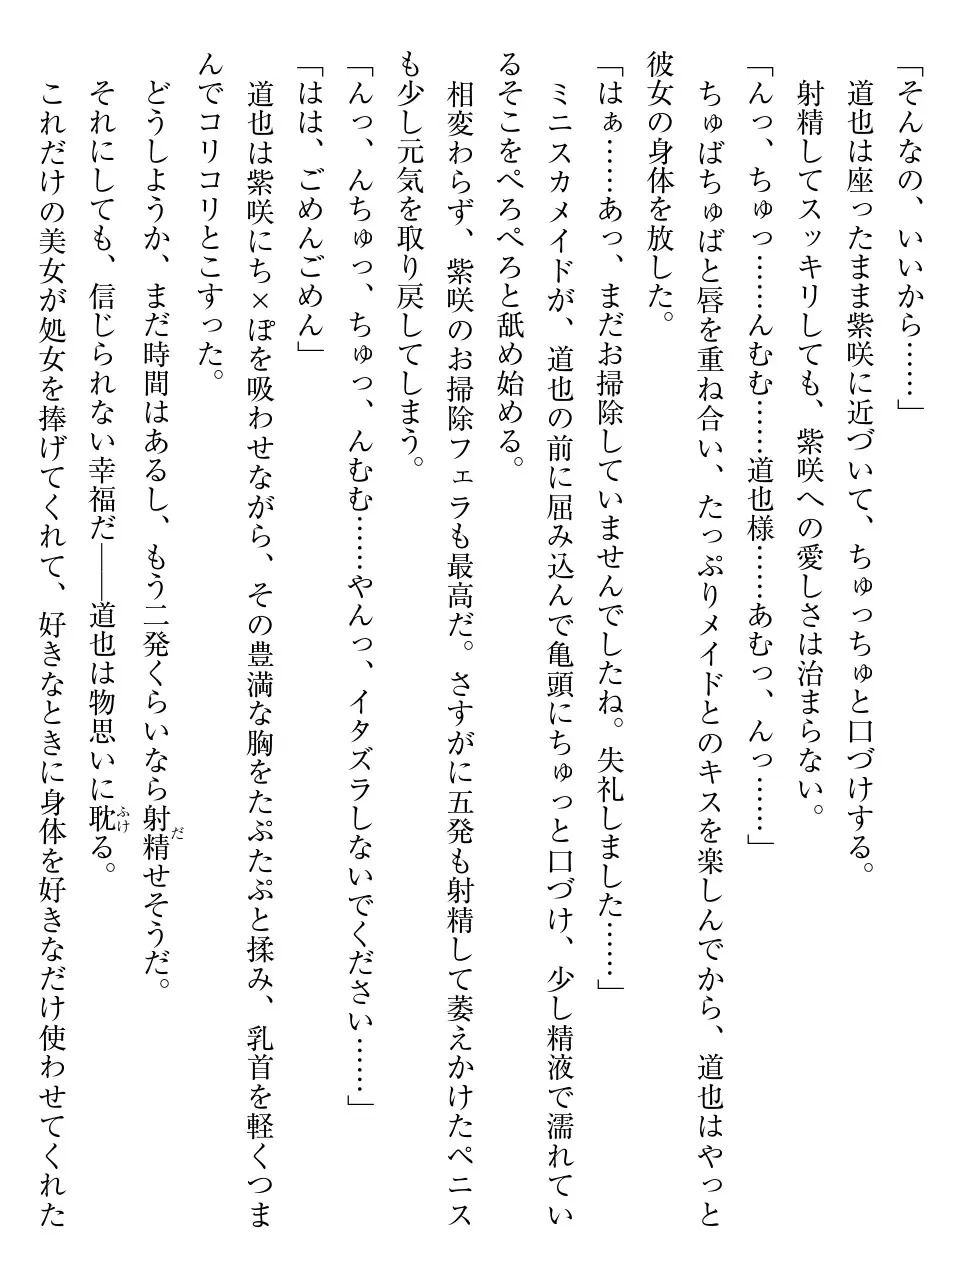 「そんなの、いいから……」
道也は座ったまま紫咲に近づいて、ちゅっちゅと口づけする。
射精してスッキリしても、紫咲への愛しさは治まらない。
「んっ、ちゅっ……んむむ……道也様……あむっ、んっ……」
ちゅばちゅばと唇を重ね合い、たっぷりメイドとのキスを楽しんでから、道也はやっと
彼女の身体を放した。
「はぁ……あっ、まだお掃除していませんでしたね。失礼しました……」
ミニスカメイドが、道也の前に屈み込んで亀頭にちゅっと口づけ、少し精液で濡れてい
るそこをぺろぺろと舐め始める。
相変わらず、紫咲のお掃除フェラも最高だ。さすがに五発も射精して萎えかけたペニス
も少し元気を取り戻してしまう。
「んっ、んちゅっ、ちゅっ、んむむ……やんっ、イタズラしないでください……」
「はは、ごめんごめん」
道也は紫咲にち×ぽを吸わせながら、その豊満な胸をたぷたぷと揉み、乳首を軽くつま
んでコリコリとこすった。
だ
どうしようか、まだ時間はあるし、もう二発くらいなら射精せそうだ。
ふけ
それにしても、信じられない幸福だ――道也は物思いに耽る。
これだけの美女が処女を捧げてくれて、好きなときに身体を好きなだけ使わせてくれた